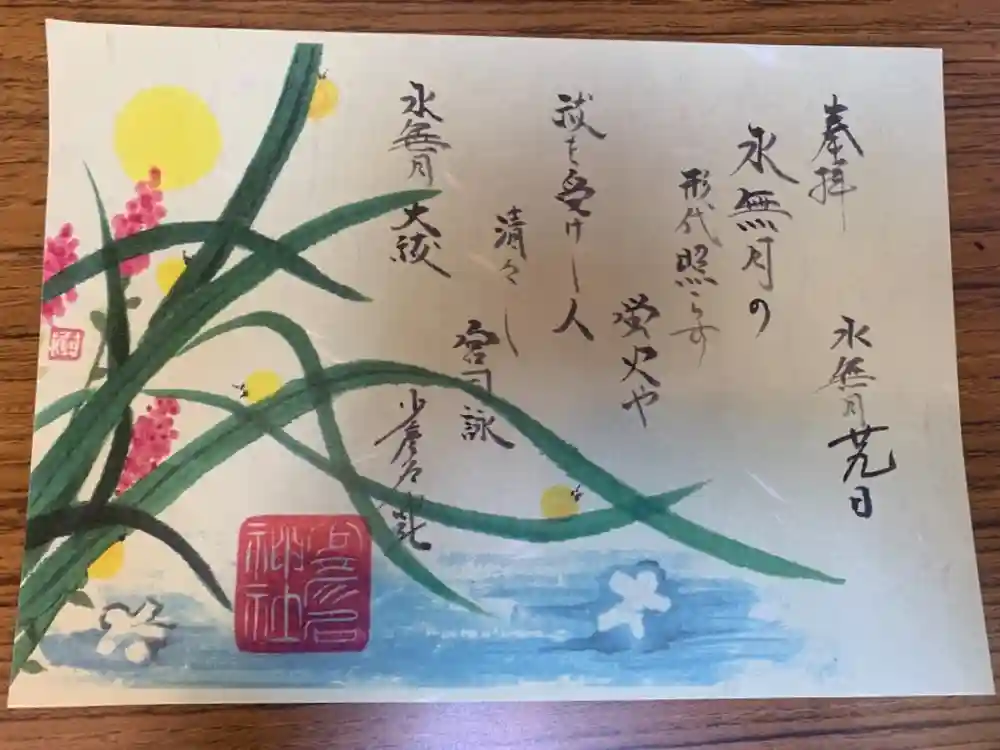 奉拝
水無月廿九日
水無月の
形代照らす
螢火や
祓を受けし人
清々し
宮司詠
水無月大祓
少彦名
少彦名
神社